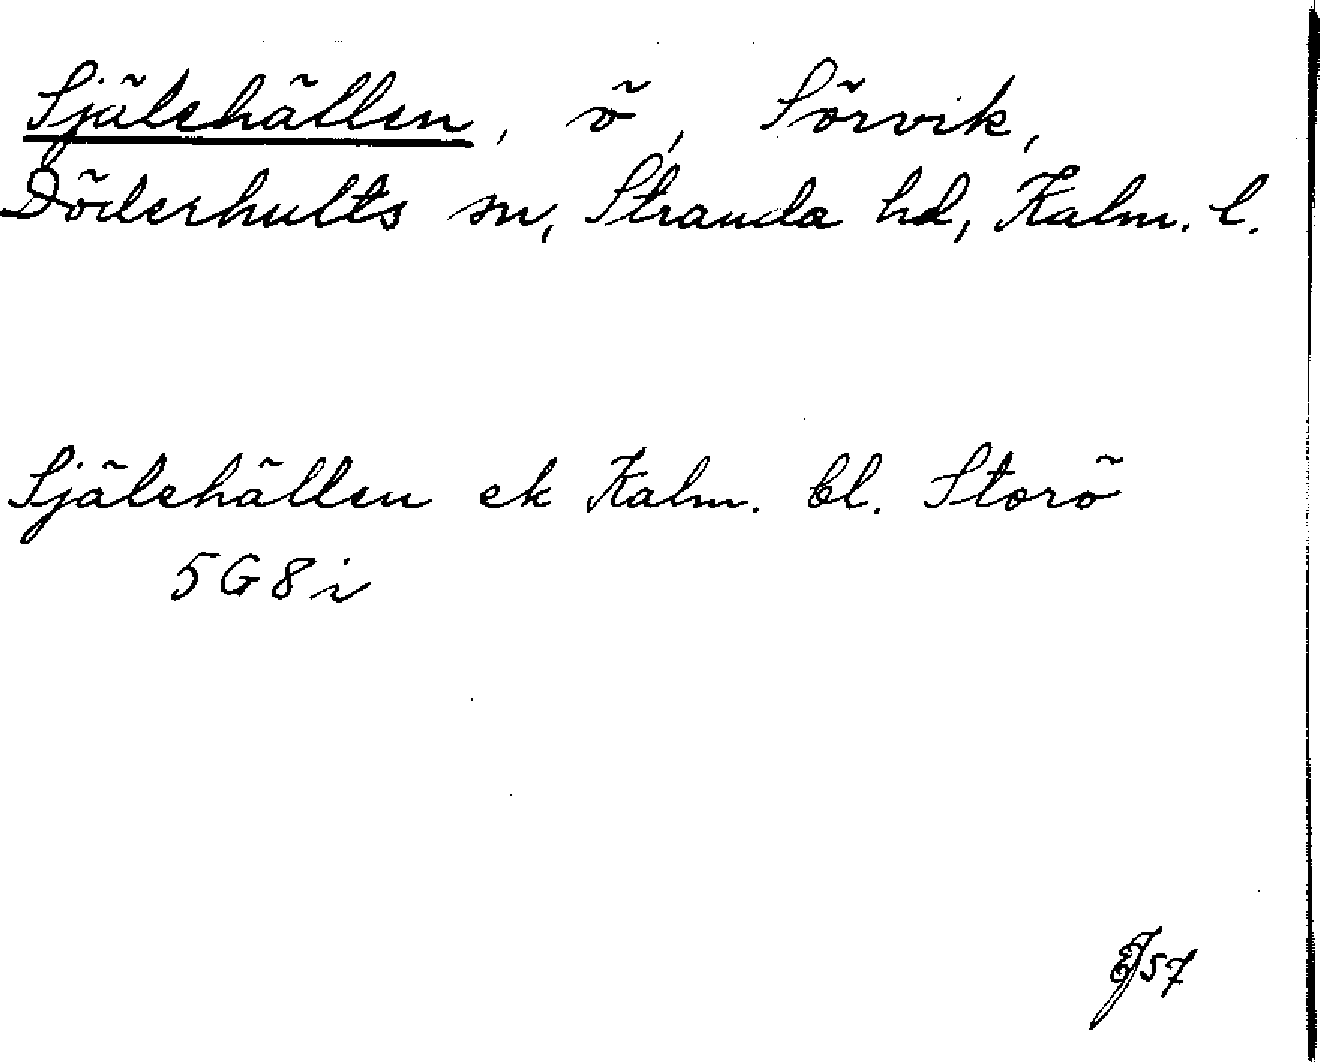 Själehällen, ö, Sörvik,
Döderhults sn, Stranda hd, Kalm. l.
Själehällen ek Kalm. bl. Storö
5G8i
57